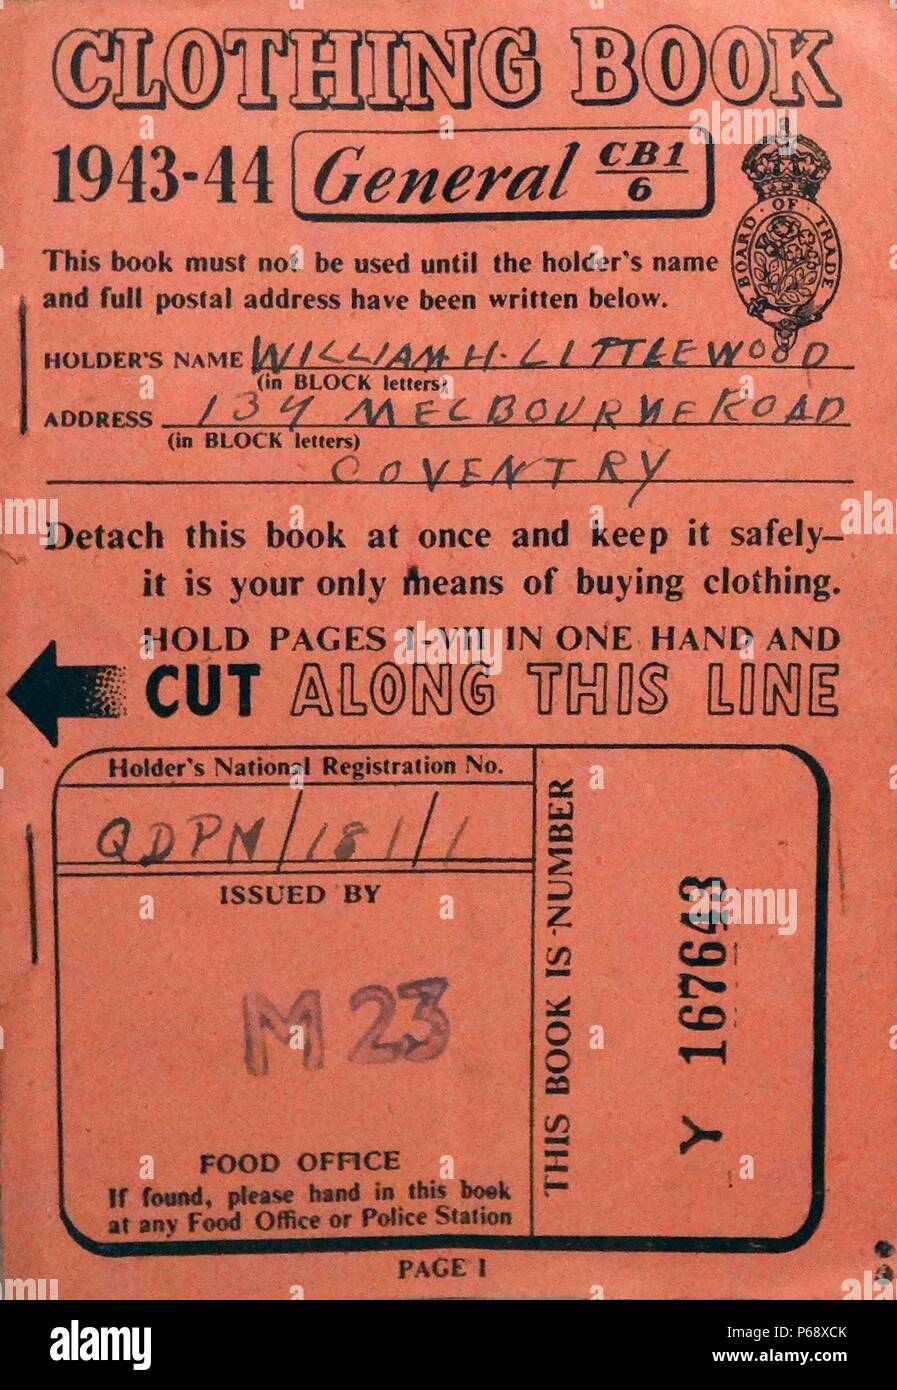 CLOTHING BOOK
1943-44 General CB1/6
BOARD OF TRADE
This book must not be used until the holder's name
and full postal address have been written below.
HOLDER'S NAME WILLIAM H. LITTLEWOOD
(in BLOCK letters)
ADDRESS 134 MELBOURNE ROAD
(in BLOCK letters)
COVENTRY
Detach this book at once and keep it safely—
it is your only means of buying clothing.
HOLD PAGES I-VII IN ONE HAND AND
CUT ALONG THIS LINE
Holder's National Registration No.
QDPN/181/1
ISSUED BY
M23
FOOD OFFICE
If found, please hand in this book
at any Food Office or Police Station
THIS BOOK IS NUMBER
Y 167643
PAGE I
alamy
Image ID: P68XCK
www.alamy.com